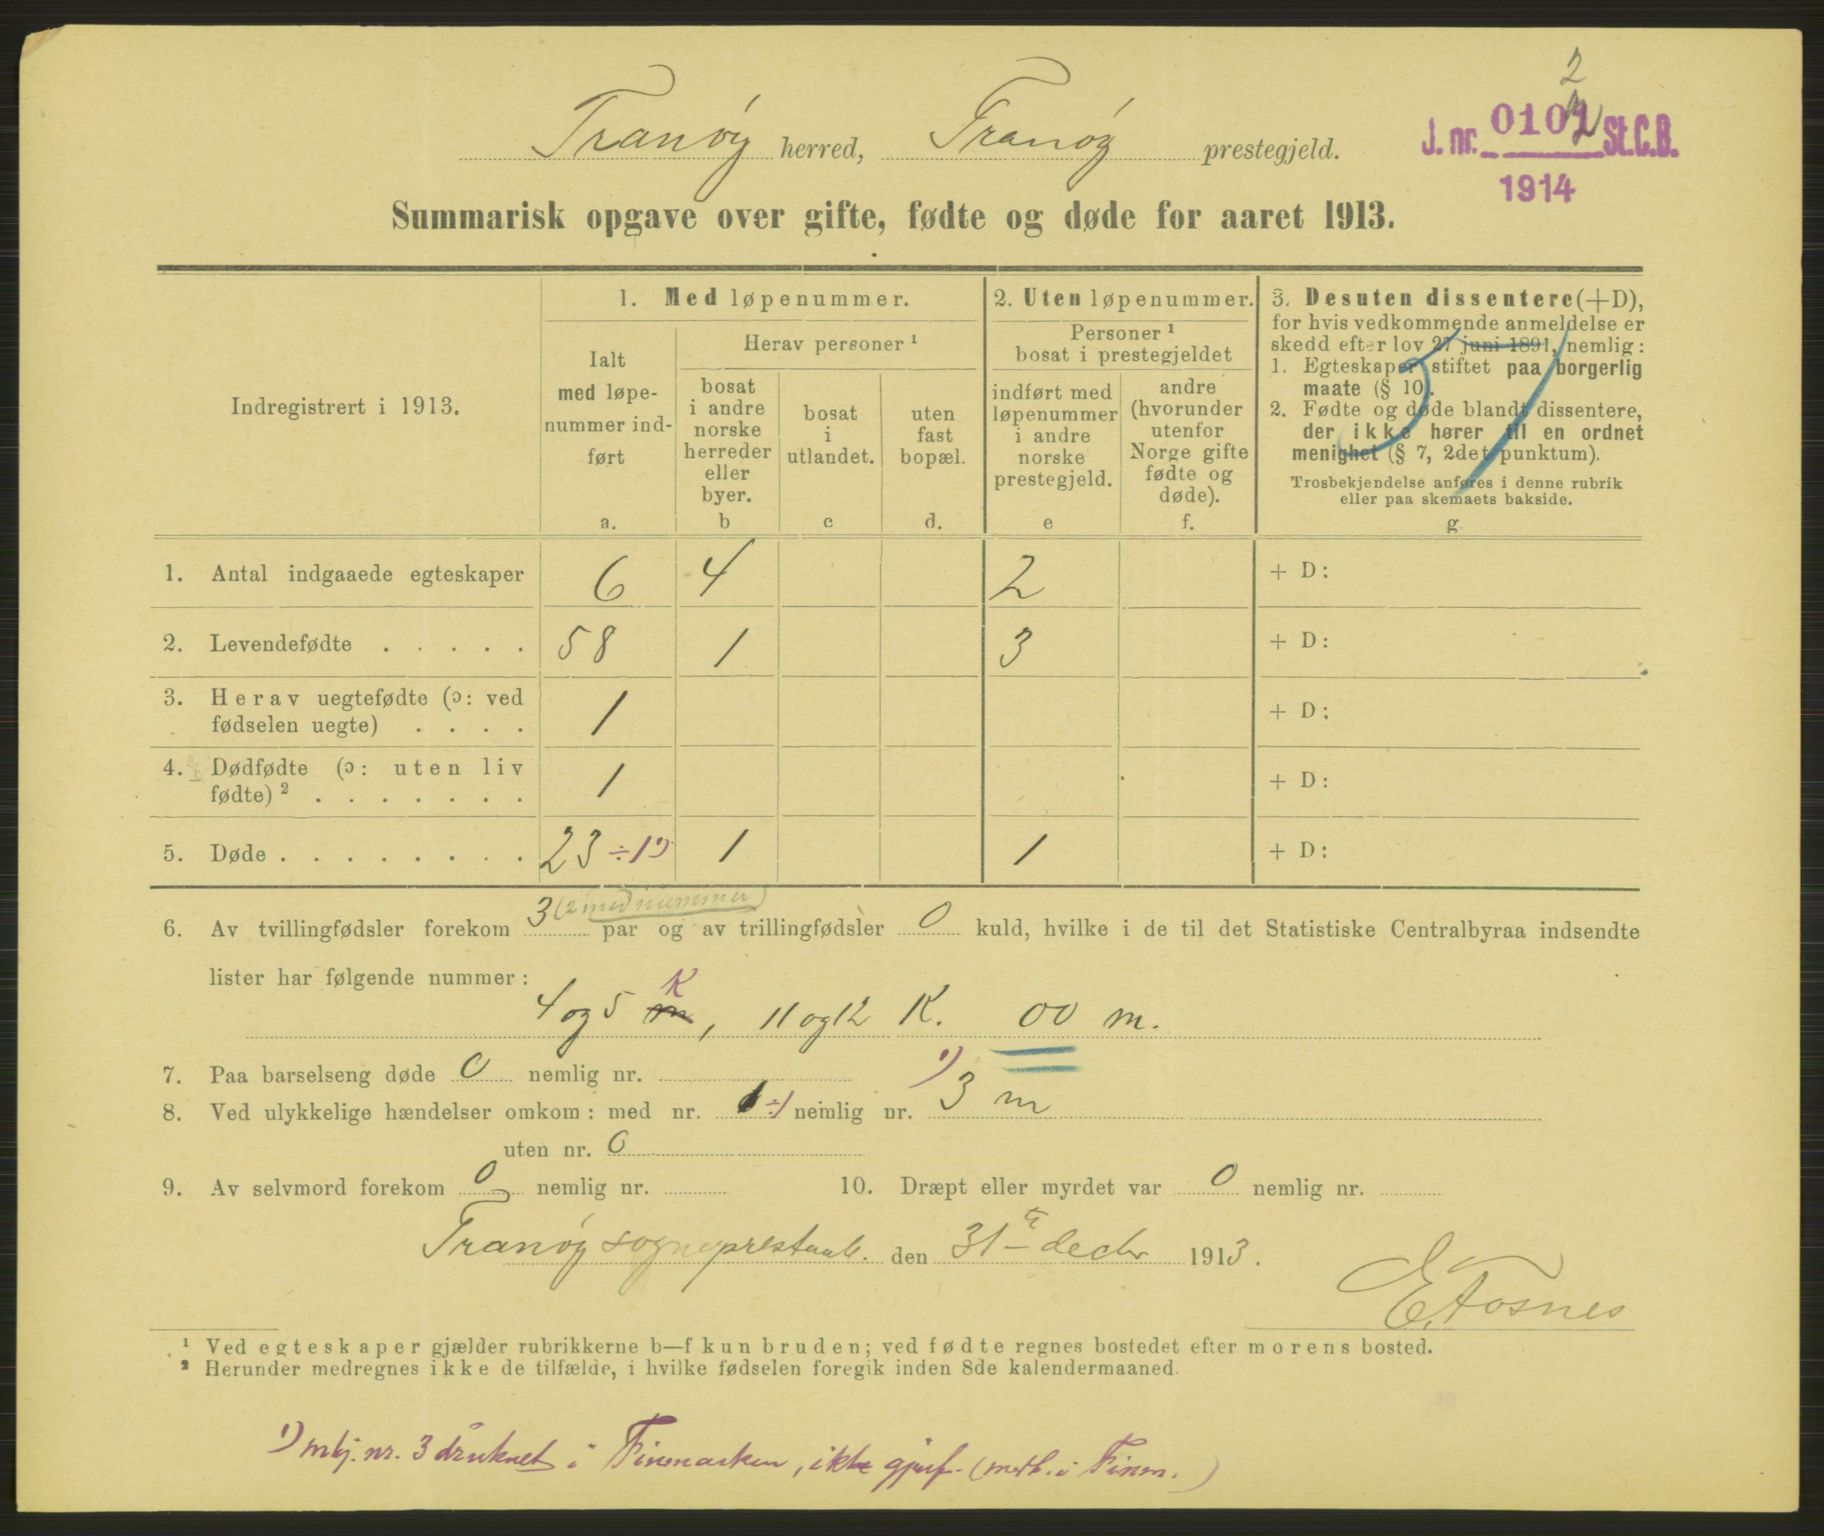 Tranöy herred, Tranöy prestegjeld.
2
J. nr. 0101 St.C.B.
1914
Summarisk opgave over gifte, fødte og døde for aaret 1913.
Indregistrert i 1913.
1. Med løpenummer.
Ialt med løpe-nummer ind-ført
a.
Herav personer ¹
bosat i andre norske herreder eller byer.
b
bosat i utlandet.
c
uten fast bopæl.
d.
2. Uten løpenummer.
Personer ¹ bosat i prestegjeldet
indført med løpenummer i andre norske prestegjeld.
e
andre (hvorunder utenfor Norge gifte fødte og døde).
f.
3. Desuten dissentere (+D),
for hvis vedkommende anmeldelse er
skedd efter lov 27 juni 1891, nemlig:
1. Egteskaper stiftet paa borgerlig
maate (§ 10).
2. Fødte og døde blandt dissentere,
der ikke hører til en ordnet
menighet (§ 7, 2det punktum).
Trosbekjendelse anføres i denne rubrik
eller paa skemaets bakside.
g.
1. Antal indgaaede egteskaper 6 4 2 + D:
2. Levendefødte . . . . . 58 1 3 + D:
3. Herav uegtefødte (ɔ: ved
fødselen uegte) . . . . 1 + D:
4. Dødfødte (ɔ: uten liv
fødte) ² . . . . . . . 1 + D:
5. Døde . . . . . . . . 23 ÷1 ¹) 1 1 + D:
6. Av tvillingfødsler forekom 3 (2 med nummer) par og av trillingfødsler 0 kuld, hvilke i de til det Statistiske Centralbyraa indsendte
lister har følgende nummer:
4 og 5 m K, 11 og 12 K. 00 m.
7. Paa barselseng døde 0 nemlig nr.
8. Ved ulykkelige hændelser omkom: med nr. 1 ÷1 nemlig nr. ¹) 3 m
uten nr. 0
9. Av selvmord forekom 0 nemlig nr. 10. Dræpt eller myrdet var 0 nemlig nr.
Tranöy sogneprestemb. den 31te decbr 1913.
E. Fosnes
¹ Ved egteskaper gjælder rubrikkerne b—f kun bruden; ved fødte regnes bostedet efter morens bosted.
² Herunder medregnes ikke de tilfælde, i hvilke fødselen foregik inden 8de kalendermaaned.
¹) mkj. nr. 3 druknet i Finmarken, ikke gjenf. (medt. i Finm.)